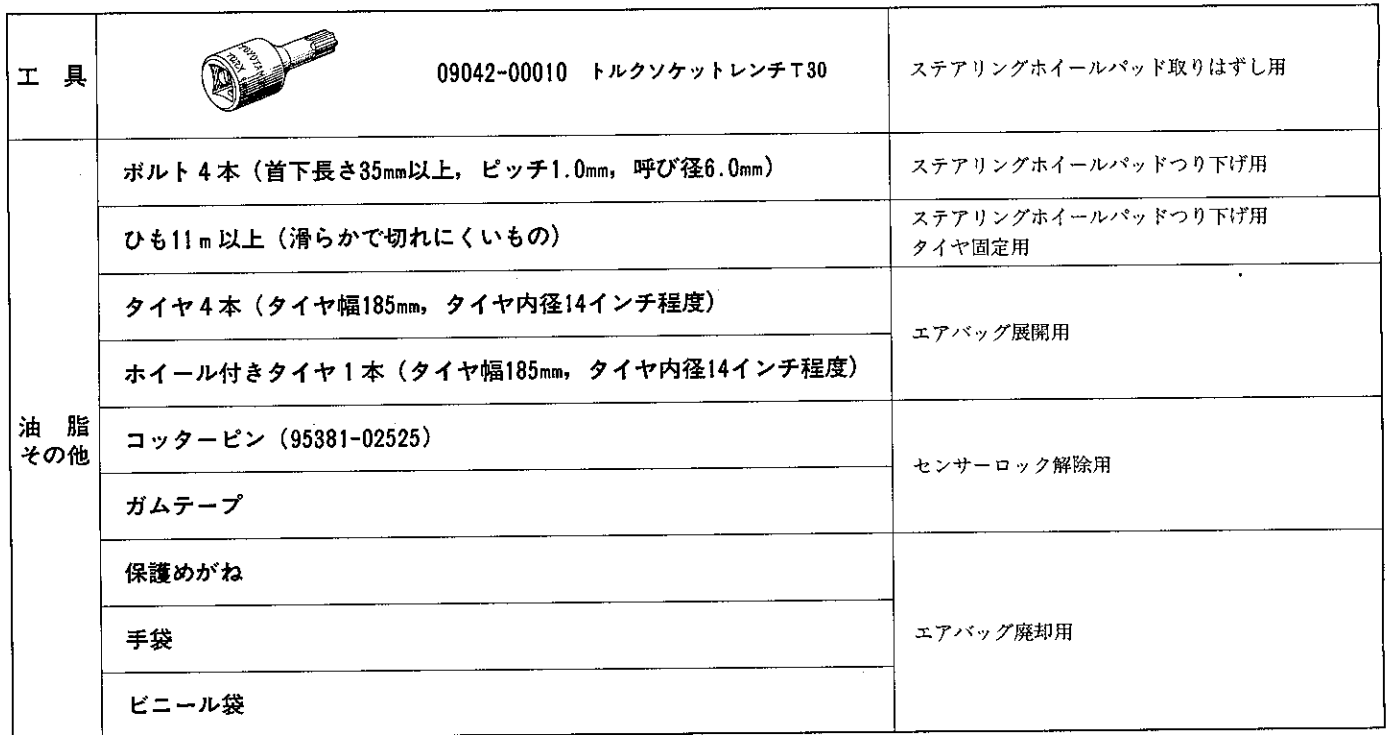 工 具
TOYOTA
TORX
09042-00010 トルクソケットレンチT30
ステアリングホイールパッド取りはずし用
油 脂
その他
ボルト4本（首下長さ35mm以上，ピッチ1.0mm，呼び径6.0mm）
ステアリングホイールパッドつり下げ用
ひも11m以上（滑らかで切れにくいもの）
ステアリングホイールパッドつり下げ用
タイヤ固定用
タイヤ4本（タイヤ幅185mm，タイヤ内径14インチ程度）
エアバッグ展開用
ホイール付きタイヤ1本（タイヤ幅185mm，タイヤ内径14インチ程度）
コッターピン（95381-02525）
センサーロック解除用
ガムテープ
保護めがね
手袋
エアバッグ廃却用
ビニール袋